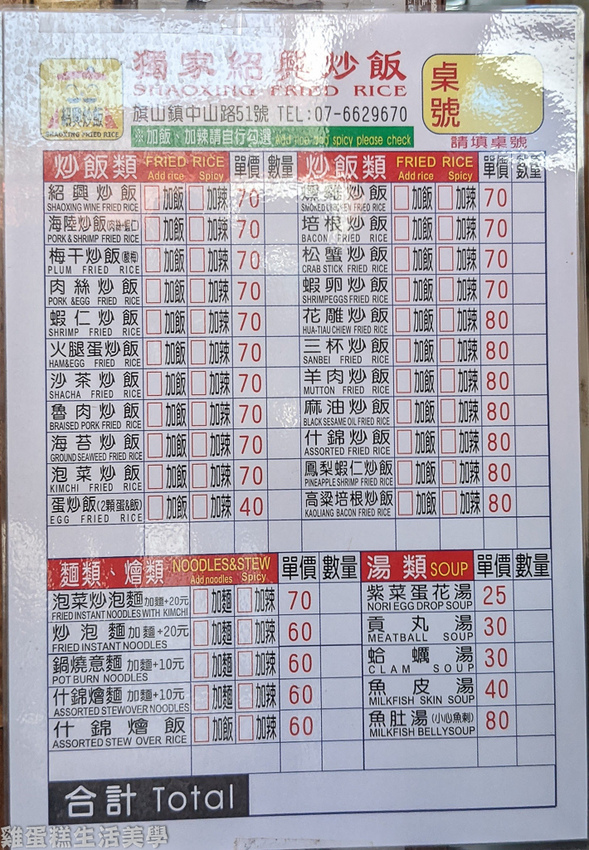 獨家紹興炒飯
SHAOXING FRIED RICE
旗山鎮中山路51號 TEL:07-6629670
※加飯、加辣請自行勾選 Add rice and spicy please check
紹興炒飯
SHAOXING FRIED RICE
桌號
請填桌號
炒飯類 FRIED RICE Add rice Spicy 單價 數量
紹興炒飯 加飯 加辣 70
SHAOXING WINE FRIED RICE
海陸炒飯 加飯 加辣 70
PORK & SHRIMP FRIED RICE
梅干炒飯(酸梅) 加飯 加辣 70
PLUM FRIED RICE
肉絲炒飯 加飯 加辣 70
PORK &EGG FRIED RICE
蝦仁炒飯 加飯 加辣 70
SHRIMP FRIED RICE
火腿蛋炒飯 加飯 加辣 70
HAM&EGG FRIED RICE
沙茶炒飯 加飯 加辣 70
SHACHA FRIED RICE
魯肉炒飯 加飯 加辣 70
BRAISED PORK FRIED RICE
海苔炒飯 加飯 加辣 70
GROUND SEAWEED FRIED RICE
泡菜炒飯 加飯 加辣 70
KIMCHI FRIED RICE
蛋炒飯(2顆蛋&飯) 加飯 加辣 40
EGG FRIED RICE
炒飯類 FRIED RICE Add rice Spicy 單價 數量
炒飯 加飯 加辣 70
SMOKED FRIED RICE
培根炒飯 加飯 加辣 70
BACON FRIED RICE
松蟹炒飯 加飯 加辣 70
CRAB STICK FRIED RICE
蝦卵炒飯 加飯 加辣 70
SHRIMPEGGS FRIED RICE
花雕炒飯 加飯 加辣 80
HUA-TIAU CHIEW FRIED RICE
三杯炒飯 加飯 加辣 80
SANBEI FRIED RICE
羊肉炒飯 加飯 加辣 80
MUTTON FRIED RICE
麻油炒飯 加飯 加辣 80
BLACK SESAME OIL FRIED RICE
什錦炒飯 加飯 加辣 80
ASSORTED FRIED RICE
鳳梨蝦仁炒飯 加飯 加辣 80
PINEAPPLE SHRIMP FRIED RICE
高粱培根炒飯 加飯 加辣 80
KAOLIANG BACON FRIED RICE
麵類、燴類 NOODLES&STEW Add noodles Spicy 單價 數量
泡菜炒泡麵 加麵+20元 加麵 加辣 70
FRIED INSTANT NOODLES WITH KIMCHI
炒泡麵 加麵+20元 加麵 加辣 60
FRIED INSTANT NOODLES
鍋燒意麵 加麵+10元 加麵 加辣 60
POT BURN NOODLES
什錦燴麵 加麵+10元 加麵 加辣 60
ASSORTED STEWOVER NOODLES
什錦燴飯 加飯 加辣 60
ASSORTED STEW OVER RICE
湯類 SOUP 單價 數量
紫菜蛋花湯 25
NORI EGG DROP SOUP
貢丸湯 30
MEATBALL SOUP
蛤蠣湯 30
CLAM SOUP
魚皮湯 40
MILKFISH SKIN SOUP
魚肚湯(小心魚刺) 80
MILKFISH BELLYSOUP
合計 Total
雞蛋糕生活美學